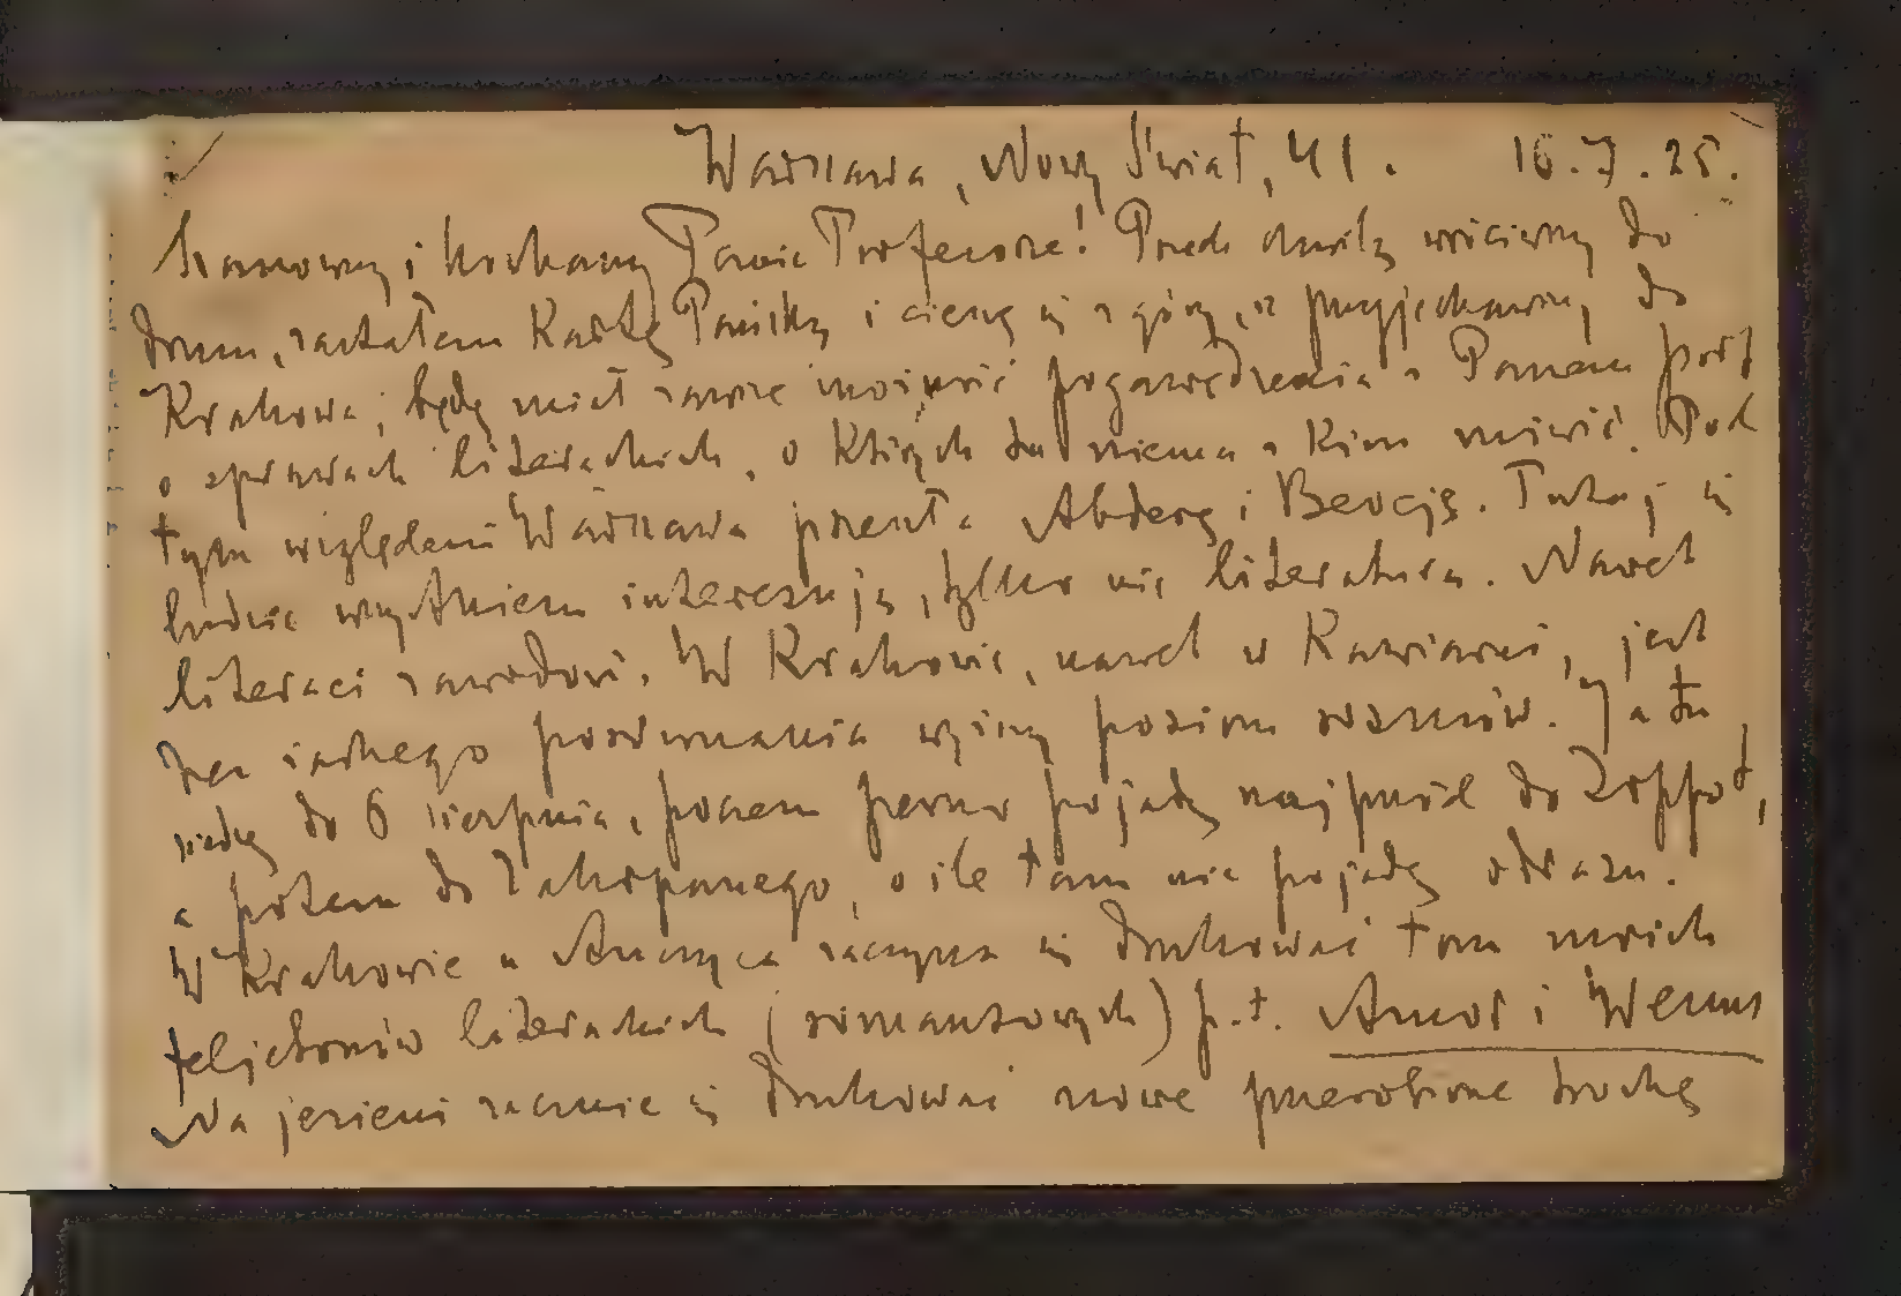 Warszawa, Nowy Świat, 41. 16.7.25.
Szanowny i kochany Panie Profesorze! Przed chwilą wróciwszy do
domu, zastałem kartkę Pańską i cieszę się z góry, iż przyjechawszy do
Krakowa, będę miał zawsze możność pogawędzenia z Panem prof
o sprawach literackich, o których tu niema z kim mówić. Pod
tym względem Warszawa przeszła Abderę i Beocję. Tutaj się
ludzie wszystkiem interesują, tylko nie literaturą. Nawet
literaci zawodowi. W Krakowie, nawet w kawiarni, jest
bez żadnego porównania wyższy poziom rozmów. Ja tu
siedzę do 6 sierpnia, poczem pewno pojadę najpierw do Zoppot,
a potem do Zakopanego, o ile tam nie pojadę odrazu.
W Krakowie u Anczyca zaczyna się drukować tom moich
feljetonów literackich (romansowych) p.t. Amor i Wenus
Na jesieni zacznie się drukować nowe przerobione trochę